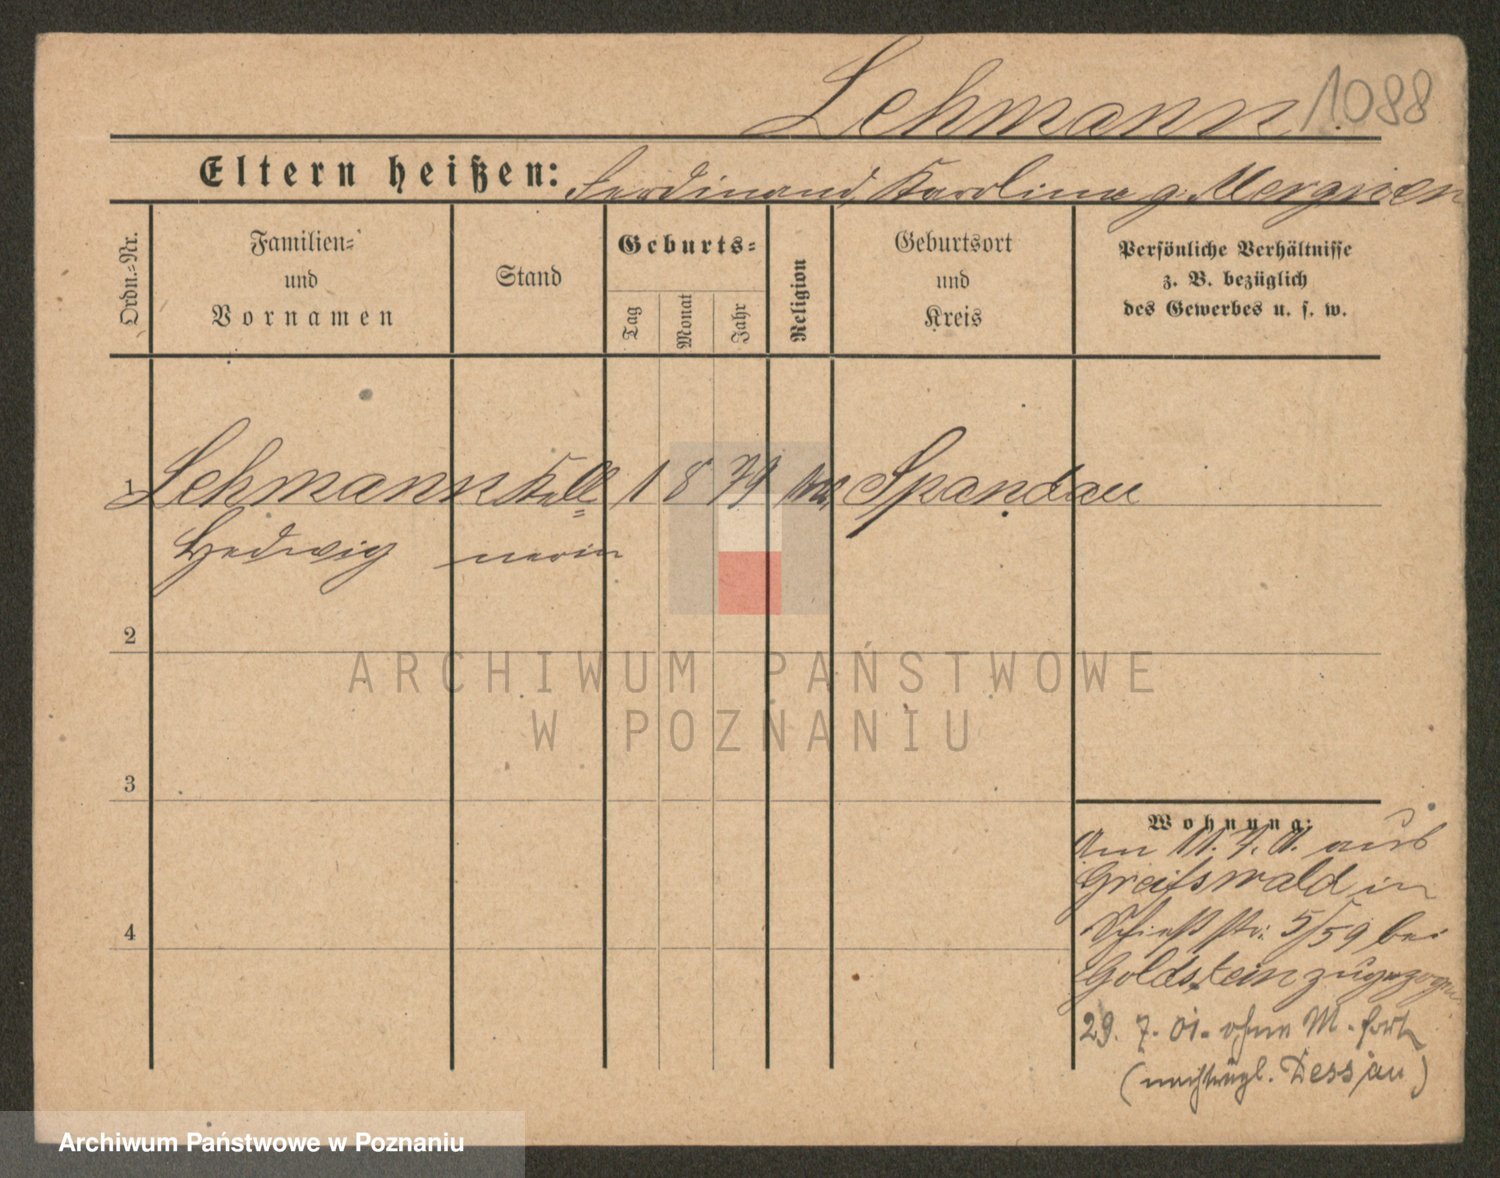 Lehmann 1088
Eltern heißen: Ferdinand, Karoline g.
Ordn.=Nr.
Familien=
und
Vornamen
Stand
Geburts=
Tag
Monat
Jahr
Religion
Geburtsort
und
Kreis
Persönliche Verhältnisse
z. B. bezüglich
des Gewerbes u. s. w.
1 Lehmann Kell= 1 8 79 Spandau
Hedwig nerin
2
ARCHIWUM PAŃSTWOWE
W POZNANIU
3
Wohnung:
Am 11. 7. 01. aus
Greifswald in
Schieß str: 5/59 bei
Goldstein zugezogen
4
29. 7. 01. ohne M. fort
(nachträgl. Dessau)
Archiwum Państwowe w Poznaniu